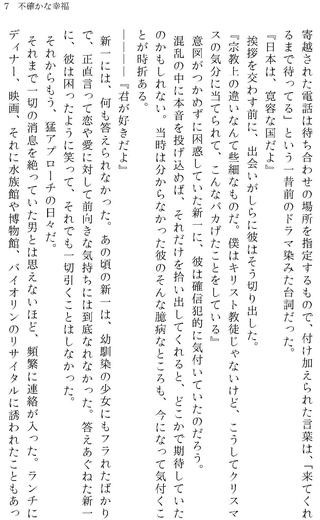 7　不確かな幸福
寄越された電話は待ち合わせの場所を指定するもので、付け加えられた言葉は、「来てくれ
るまで待ってる」という一昔前のドラマ染みた台詞だった。
『日本は、寛容な国だよ』
挨拶を交わす前に、出会いがしらに彼はそう切り出した。
『宗教上の違いなんて些細なものだ。僕はキリスト教徒じゃないけど、こうしてクリスマ
スの気分に当てられて、こんなバカげたことをしている』
意図がつかめずに困惑していた新一に、彼は確信犯的に気付いていたのだろう。
混乱の中に本音を投げ込めば、それだけを拾い出してくれると、どこかで期待していた
のかもしれない。当時は分からなかった彼のそんな臆病なところも、今になって気付くこ
とが時折ある。
――――『君が好きだよ』
新一には、何も答えられなかった。あの頃の新一は、幼馴染の少女にもフラれたばかり
で、正直言って恋や愛に対して前向きな気持ちには到底なれなかった。答えあぐねた新一
に、彼は困ったように笑って、それでも一切引くことはしなかった。
それからもう、猛アプローチの日々だ。
それまで一切の消息を絶っていた男とは思えないほど、頻繁に連絡が入った。ランチに
ディナー、映画、それに水族館や博物館、バイオリンのリサイタルに誘われたこともあっ